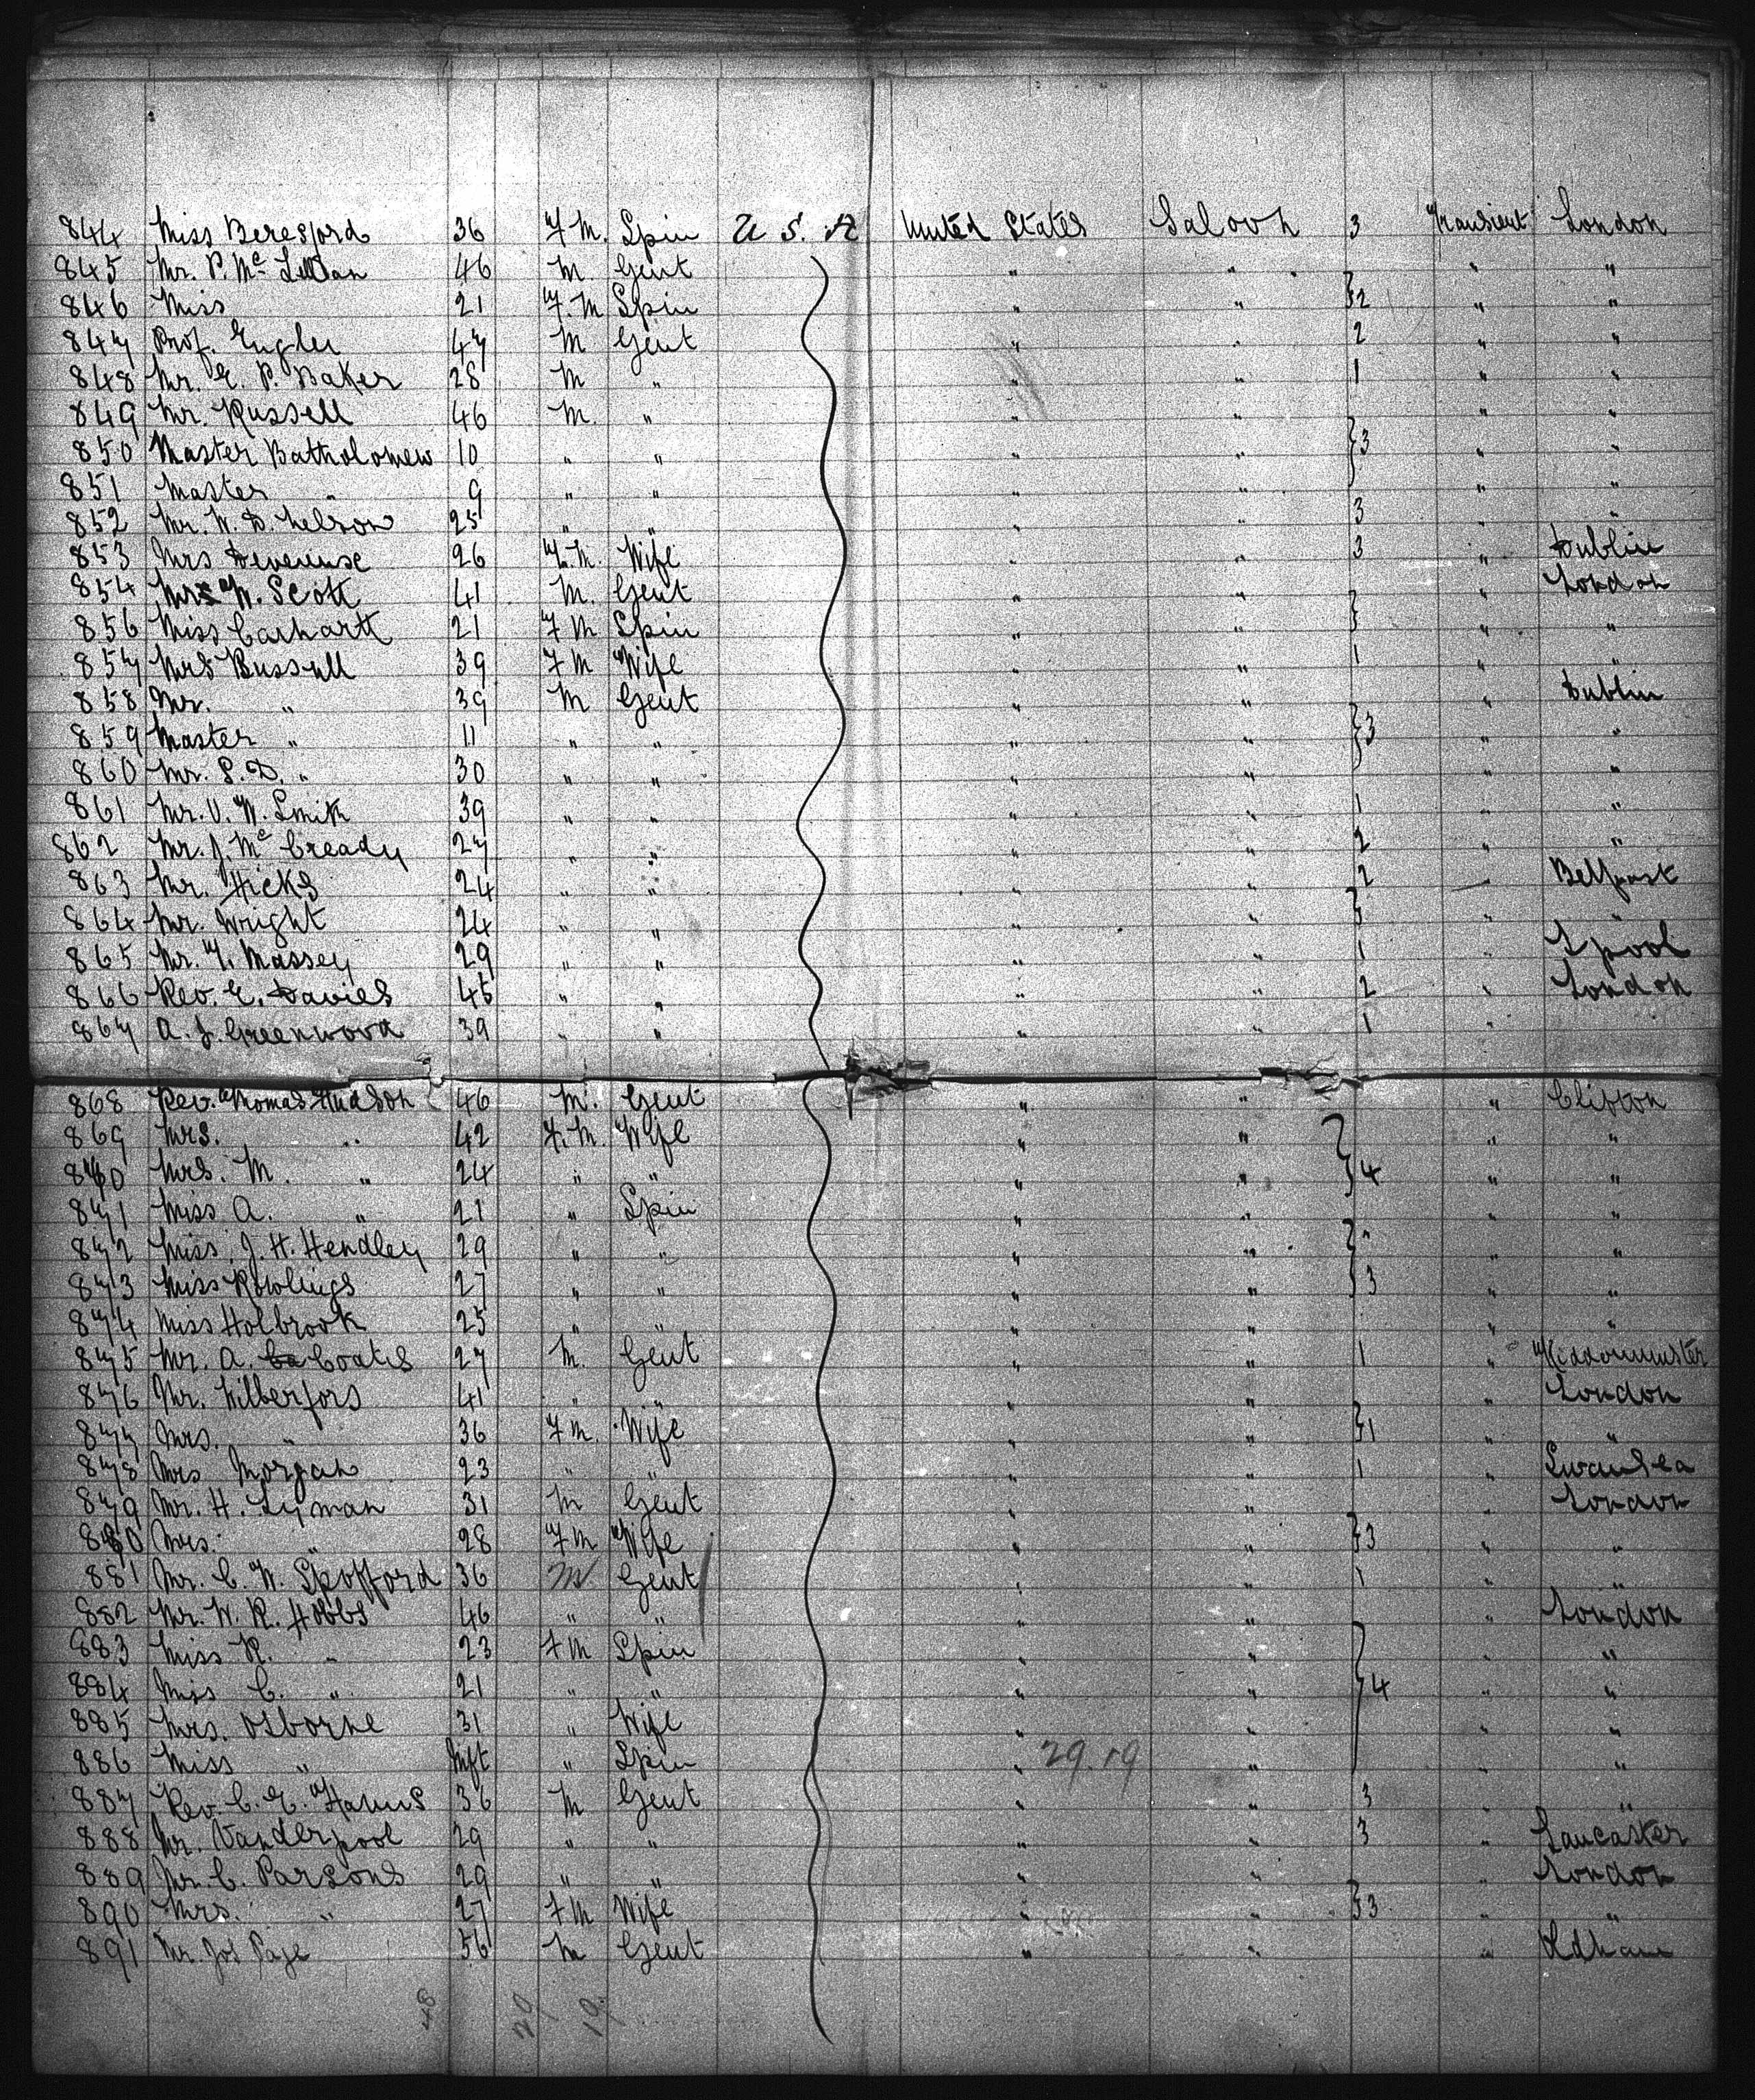 844 Miss Beresford 36 F M. Spin U S. A United States Saloon 3 Transient London
845 Mr. P. Mc 46 M. Gent " " " "
846 Miss 21 F. M Spin " " }2 " "
847 Prof. Engler 47 M Gent " " 2 " "
848 Mr. E. P. Baker 28 M " " " 1 " "
849 Mr. Russell 46 M. " " " " "
850 Master Batholomew 10 " " " " }3 " "
851 Master " 9 " " " " "
852 Mr. W. D. Nelson 25 " " " " 3 "
853 Mrs Devereuse 26 F. M. Wife " " 3 " Dublin
854 Mrs W. Scott 41 M. Gent " " " London
856 Miss Carhartt 21 F M Spin " " } " "
857 Mrs Bussell 39 F M Wife " " 1 " "
858 Mr. " 39 M Gent " " " Dublin
859 Master " 11 " " " " }3 " "
860 Mr. S. D. " 30 " " " " " "
861 Mr. V. W. Smith 39 " " " " 1 " "
862 Mr. J. Mc Cready 27 " " " " 2 " "
863 Mr. Hicks 24 " " " " 2 Belfast
864 Mr. Wright 24 " " " " } " "
865 Mr. F. Massey 29 " " " " 1 " Lpool
866 Rev. E. Davies 45 " " " " 2 " London
867 A. J. Greenwood 39 " " " " 1 "
868 Rev. Thomas Hudson 46 M. Gent " " " Clifton
869 Mrs. " 42 F. M. Wife " " " "
870 Mrs. M. " 24 " " " " }4 " "
871 Miss A. " 21 " Spin " " " "
872 Miss J. H. Hendley 29 " " " " " "
873 Miss Rowlings 27 " " " " }3 " "
874 Miss Holbrook 25 " " " " " "
875 Mr. A. Coates 27 M. Gent " " 1 " Kidderminster
876 Mr. Wilberfors 41 " " " " " London
877 Mrs. " 36 F M. Wife " " }1 " "
878 Mrs Morgan 23 " " " " 1 " Swansea
879 Mr. H. Lyman 31 M Gent " " " London
880 Mrs. " 28 F M Wife " " }3 " "
881 Mr. C. W. Spofford 36 M Gent " " 1 " "
882 Mr. W. R. Hobbs 46 " " " " " London
883 Miss R. " 23 F M Spin " " " "
884 Miss C. " 21 " " " " }4 " "
885 Mrs. Osborne 31 " Wife " " " "
886 Miss " Inft " Spin " 29.19 " "
887 Rev. C. E. 36 M Gent " " 3 " "
888 Mr. Vanderpool 29 " " " " 3 " Lancaster
889 Mr. C. Parsons 29 " " " " " London
890 Mrs. " 27 F M Wife " " }3 " "
891 Mr. Jos Page 56 M Gent " " " Oldham
48 29 19